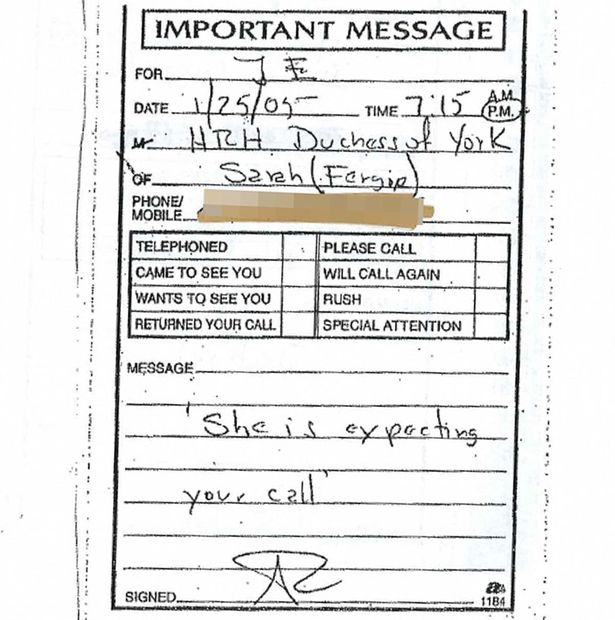 IMPORTANT MESSAGE
FOR J E
DATE 1/25/05 TIME 7:15 A.M. P.M.
M HRH Duchess of York
OF Sarah (Fergie)
PHONE/
MOBILE
TELEPHONED PLEASE CALL
CAME TO SEE YOU WILL CALL AGAIN
WANTS TO SEE YOU RUSH
RETURNED YOUR CALL SPECIAL ATTENTION
MESSAGE
"She is expecting
your call"
SIGNED
1184